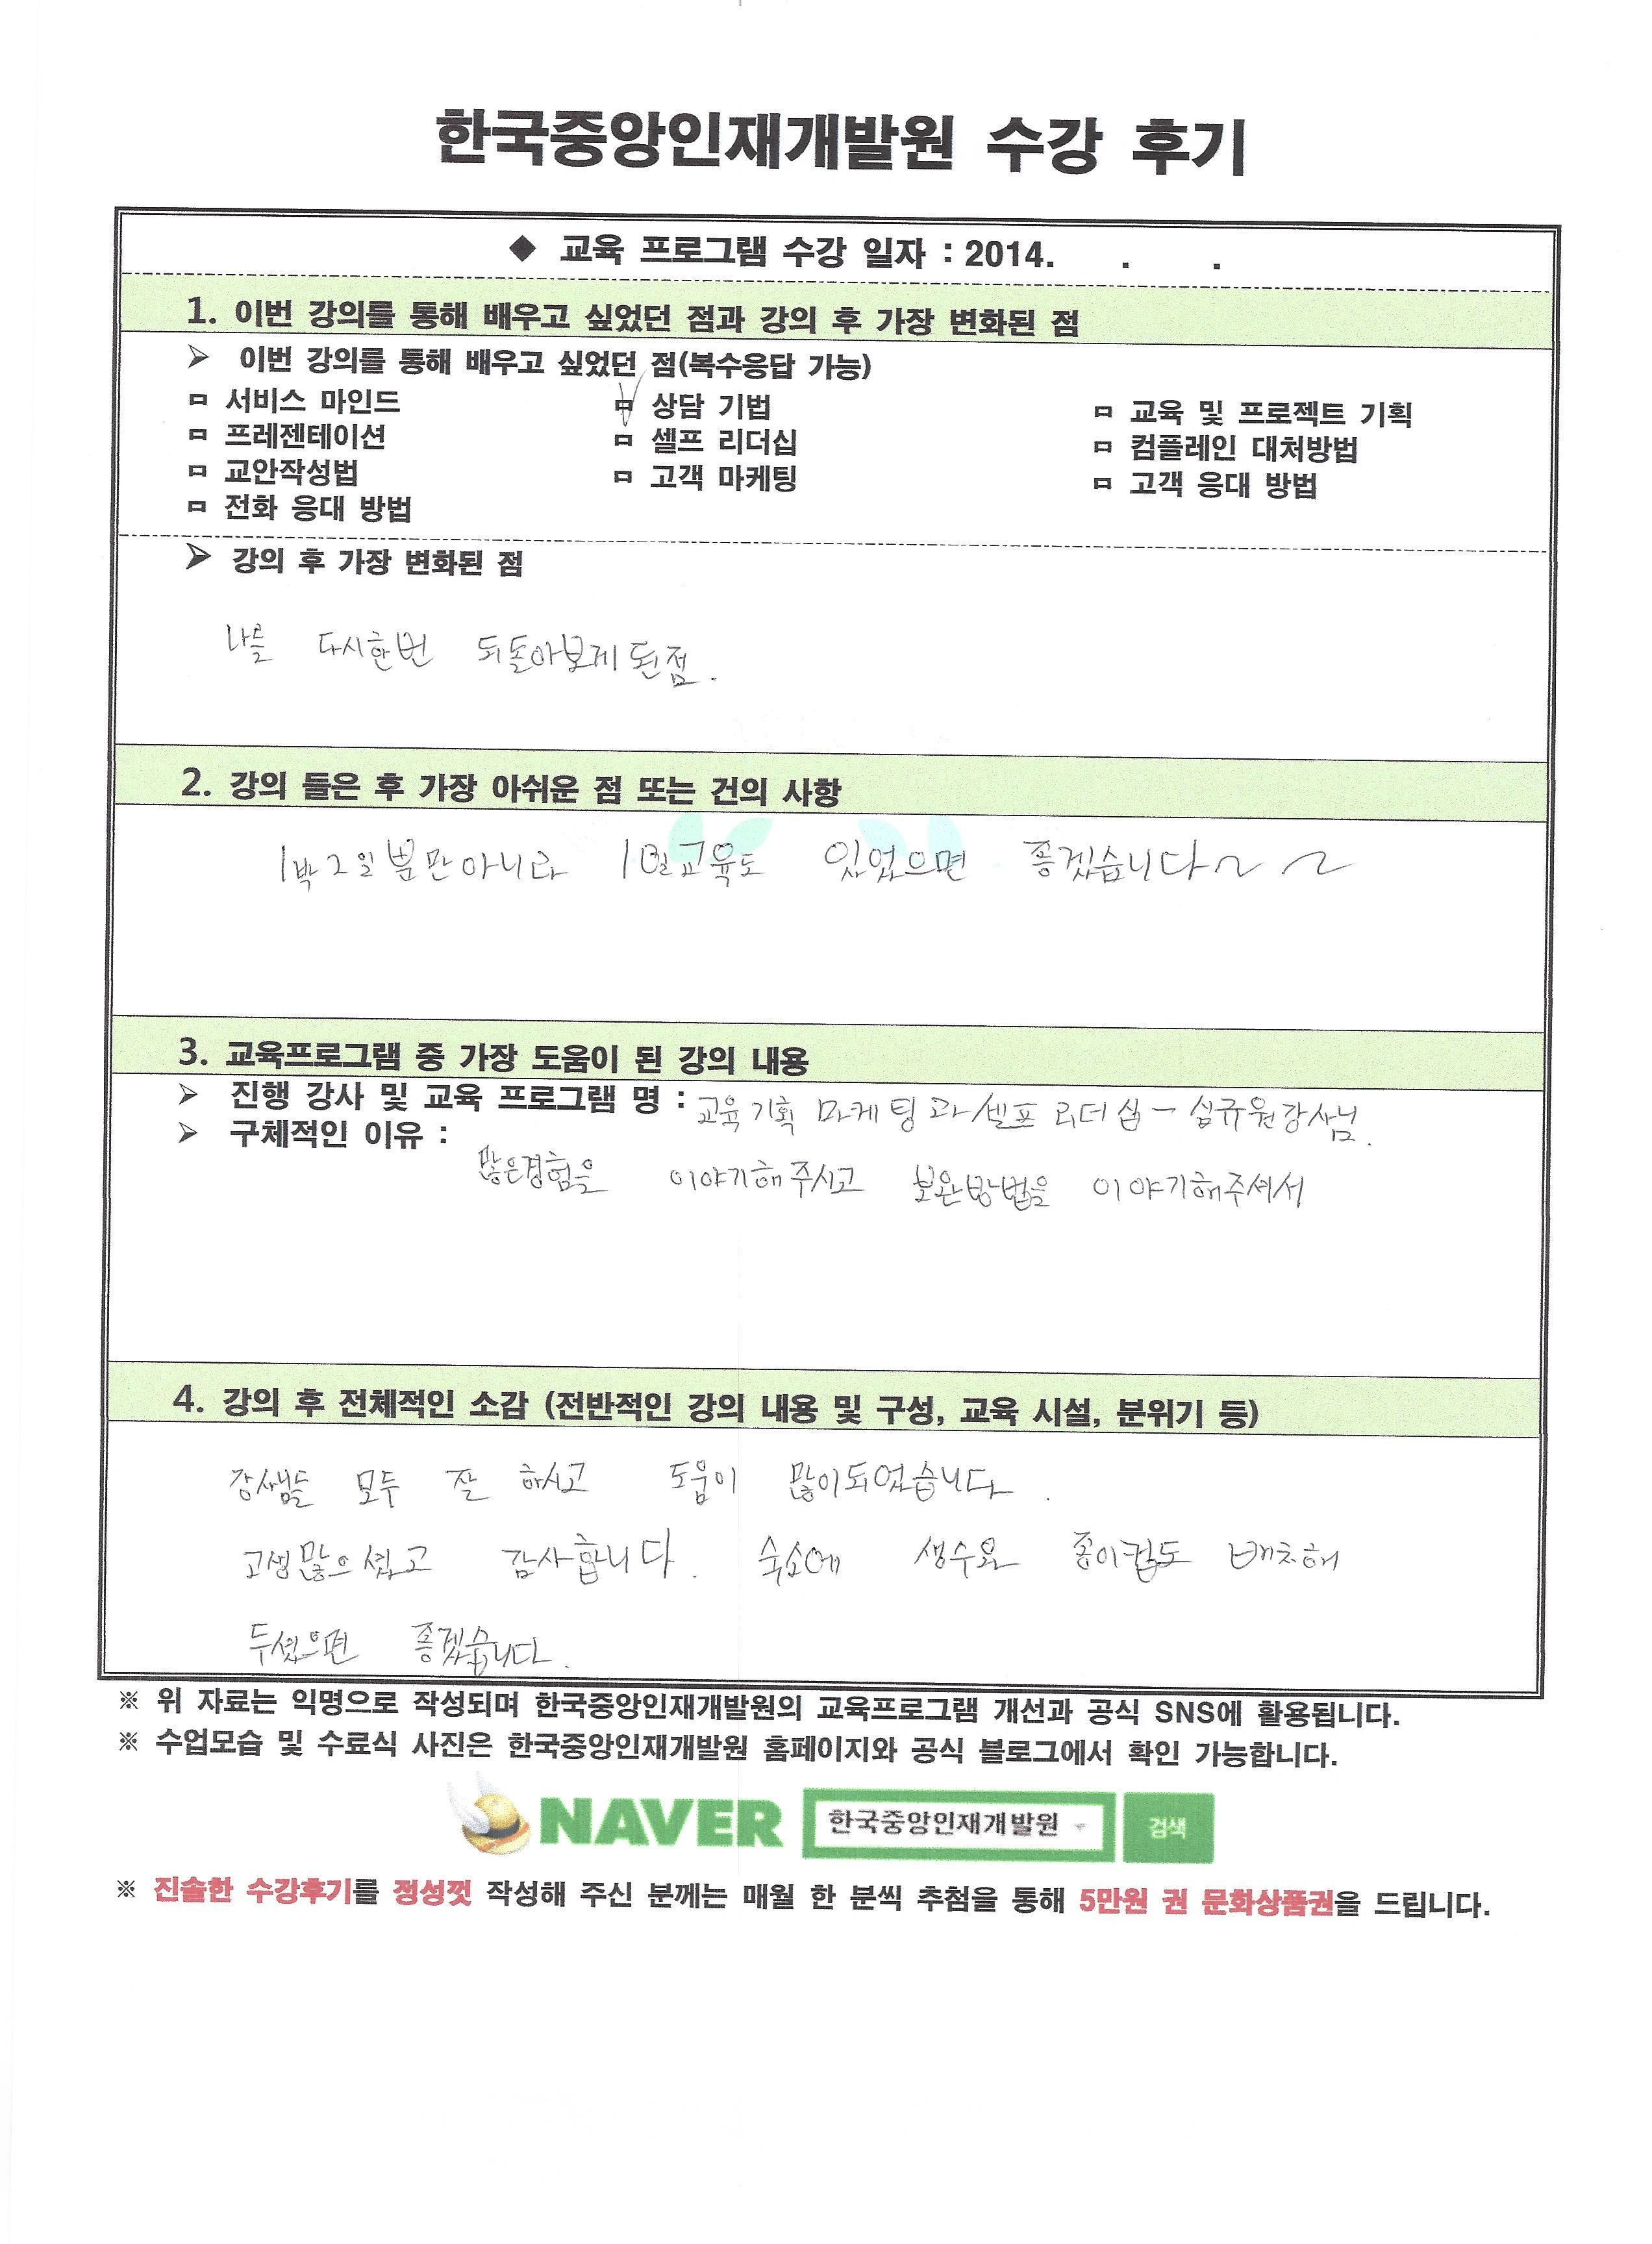 한국중앙인재개발원 수강 후기
◆ 교육 프로그램 수강 일자 : 2014. . .
1. 이번 강의를 통해 배우고 싶었던 점과 강의 후 가장 변화된 점
➢ 이번 강의를 통해 배우고 싶었던 점(복수응답 가능)
ㅁ 서비스 마인드 ㅁ 상담 기법 ㅁ 교육 및 프로젝트 기획
ㅁ 프레젠테이션 ㅁ 셀프 리더십 ㅁ 컴플레인 대처방법
ㅁ 교안작성법 ㅁ 고객 마케팅 ㅁ 고객 응대 방법
ㅁ 전화 응대 방법
➢ 강의 후 가장 변화된 점
나를 다시한번 되돌아보게된점.
2. 강의 들은 후 가장 아쉬운 점 또는 건의 사항
1박2일뿐만아니라 1일교육도 있었으면 좋겠습니다~ ~
3. 교육프로그램 중 가장 도움이 된 강의 내용
➢ 진행 강사 및 교육 프로그램 명 : 교육기획 마케팅과 셀프 리더십 - 심규원강사님.
➢ 구체적인 이유 :
많은경험을 이야기해주시고 보완방법을 이야기해주셔서
4. 강의 후 전체적인 소감 (전반적인 강의 내용 및 구성, 교육 시설, 분위기 등)
강사님들 모두 잘 하시고 도움이 많이되었습니다.
고생많으셨고 감사합니다. 숙소에 생수요 종이컵도 배치해
두셨으면 좋겠습니다.
※ 위 자료는 익명으로 작성되며 한국중앙인재개발원의 교육프로그램 개선과 공식 SNS에 활용됩니다.
※ 수업모습 및 수료식 사진은 한국중앙인재개발원 홈페이지와 공식 블로그에서 확인 가능합니다.
NAVER 한국중앙인재개발원 검색
※ 진솔한 수강후기를 정성껏 작성해 주신 분께는 매월 한 분씩 추첨을 통해 5만원 권 문화상품권을 드립니다.